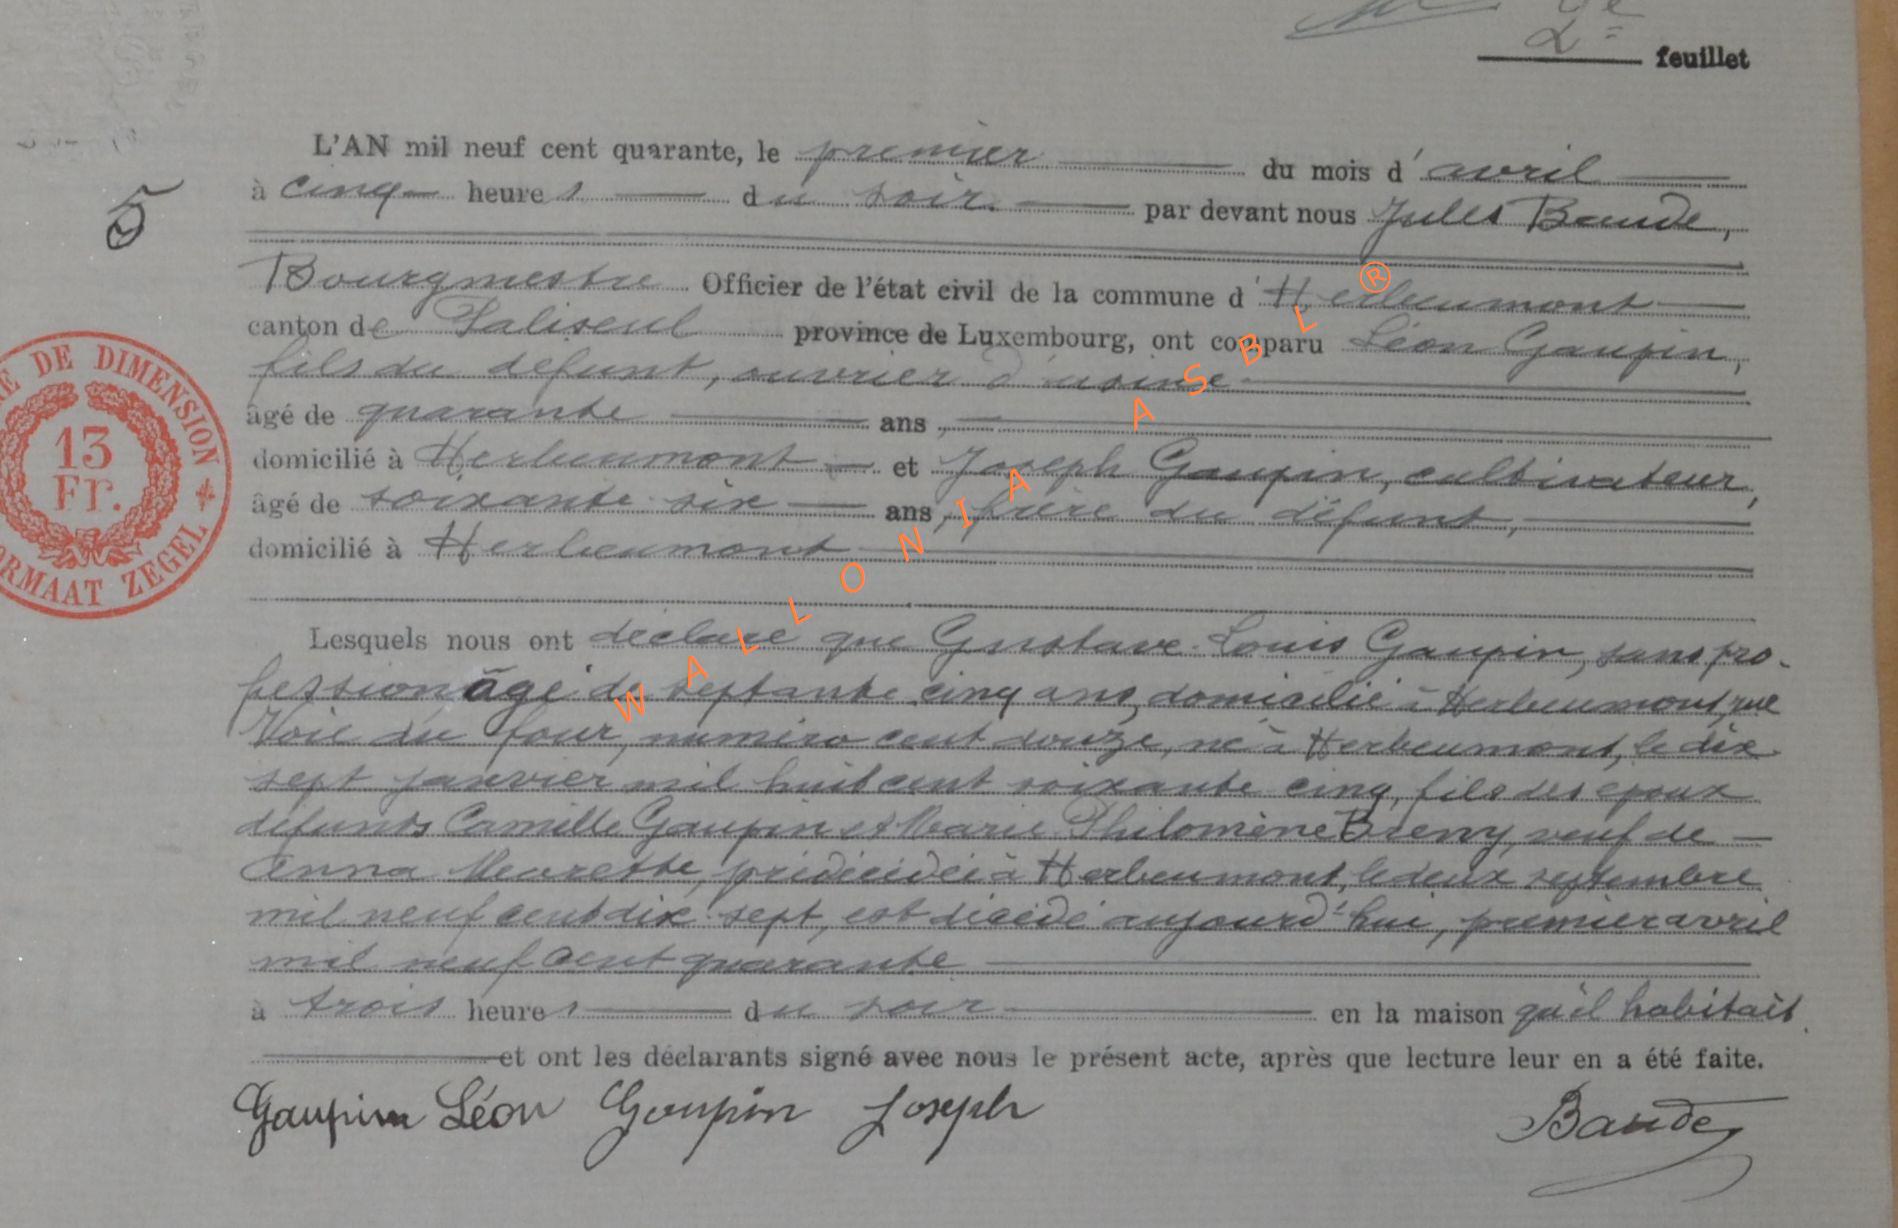 2e feuillet
L'AN mil neuf cent quarante, le premier du mois d'avril
5
à cinq heures du soir par devant nous Jules Baude,
Bourgmestre Officier de l'état civil de la commune d'Herbeumont
canton de Paliseul province de Luxembourg, ont comparu Léon Gaupin,
fils du défunt, ouvrier d'usine
âgé de quarante ans,
domicilié à Herbeumont et Joseph Gaupin, cultivateur,
âgé de soixante six ans, frère du défunt,
domicilié à Herbeumont
Lesquels nous ont déclaré que Gustave Louis Gaupin, sans pro-
fession âgé de septante cinq ans, domicilié à Herbeumont, rue
Voie du four, numéro cent douze, né à Herbeumont, le dix
sept janvier mil huit cent soixante cinq, fils des époux
défunts Camille Gaupin et Marie Philomène veuf de
Anna prédécédée à Herbeumont, le deux septembre
mil neuf cent dix sept, est décédé aujourd'hui, premier avril
mil neuf cent quarante
à trois heures du soir en la maison qu'il habitait
et ont les déclarants signé avec nous le présent acte, après que lecture leur en a été faite.
Gaupin Léon Goupin Joseph Baude
DE DIMENSION
13
Fr.
FORMAAT ZEGEL
WALLONIA ASBL ®